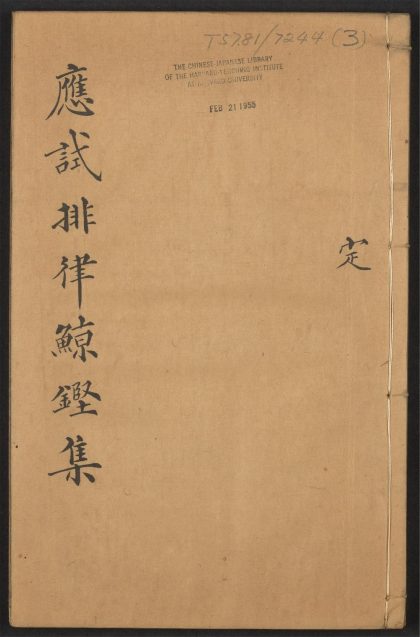 T5781/7244 (3)
THE CHINESE-JAPANESE LIBRARY
OF THE HARVARD-YENCHING INSTITUTE
AT HARVARD UNIVERSITY
FEB 21 1955
定
應試排律鯨鏗集